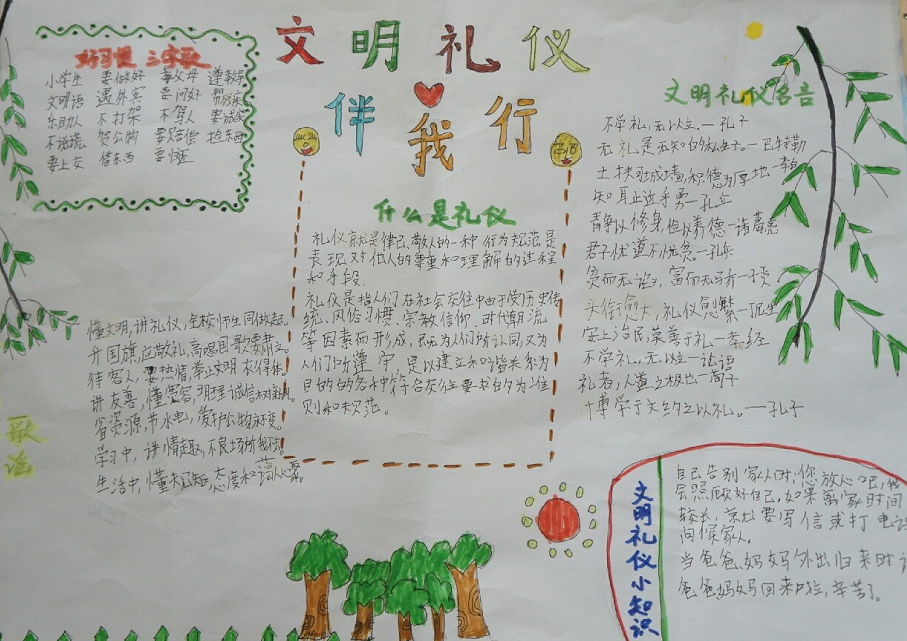 文明礼仪
伴我行
好习惯 三字歌
小学生 要做好 尊父母 遵教导
文明语 遇外宾 要问好 帮残疾
乐助人 不打架 不骂人 要诚实
不说谎 损公物 要赔偿 拾东西
要上交 借东西 要归还
什么是礼仪
礼仪就是律己、敬人的一种行为规范是
表现对他人的尊重和理解的过程
和手段.
礼仪是指人们在社会交往中由于受历史传
统、风俗习惯、宗教信仰、时代潮流
等因素而形成,既为人们所认同又为
人们所遵守,是以建立和谐关系为
目的的各种符合交往要求的行为准
则和规范。
文明礼仪名言
不学礼,无以立。一孔子
无礼是无知的私生子。一巴特勒
土扶可成墙,积德为厚地一李白
知耻近乎勇一孔丘
静以修身俭以养德一诸葛亮
君子忧道不忧贫。一孔丘
贫而无谄,富而无骄一子贡
头衔愈大,礼仪愈繁一
安上治民莫善于礼一孝经
不学礼,无以立一论语
礼者,人道之极也一荀子
博学于文约之以礼。一孔子
懂文明,讲礼仪,全校师生同做起。
升国旗,应敬礼,高唱国歌要肃立。
待客人,要热情,举止文明衣得体。
讲友善,懂宽容,明理诚信
省资源,节水电,爱护公物
学习中,讲情趣,不良场所我不去。
生活中,懂
歌谣
文明礼仪小知识
自己告别家人时:您放心吧,我
会照顾好自己,如果离家时间
较长,就要写信或打电话
问候家人。
当爸爸、妈妈外出归来时
爸爸妈妈回来啦,辛苦了。